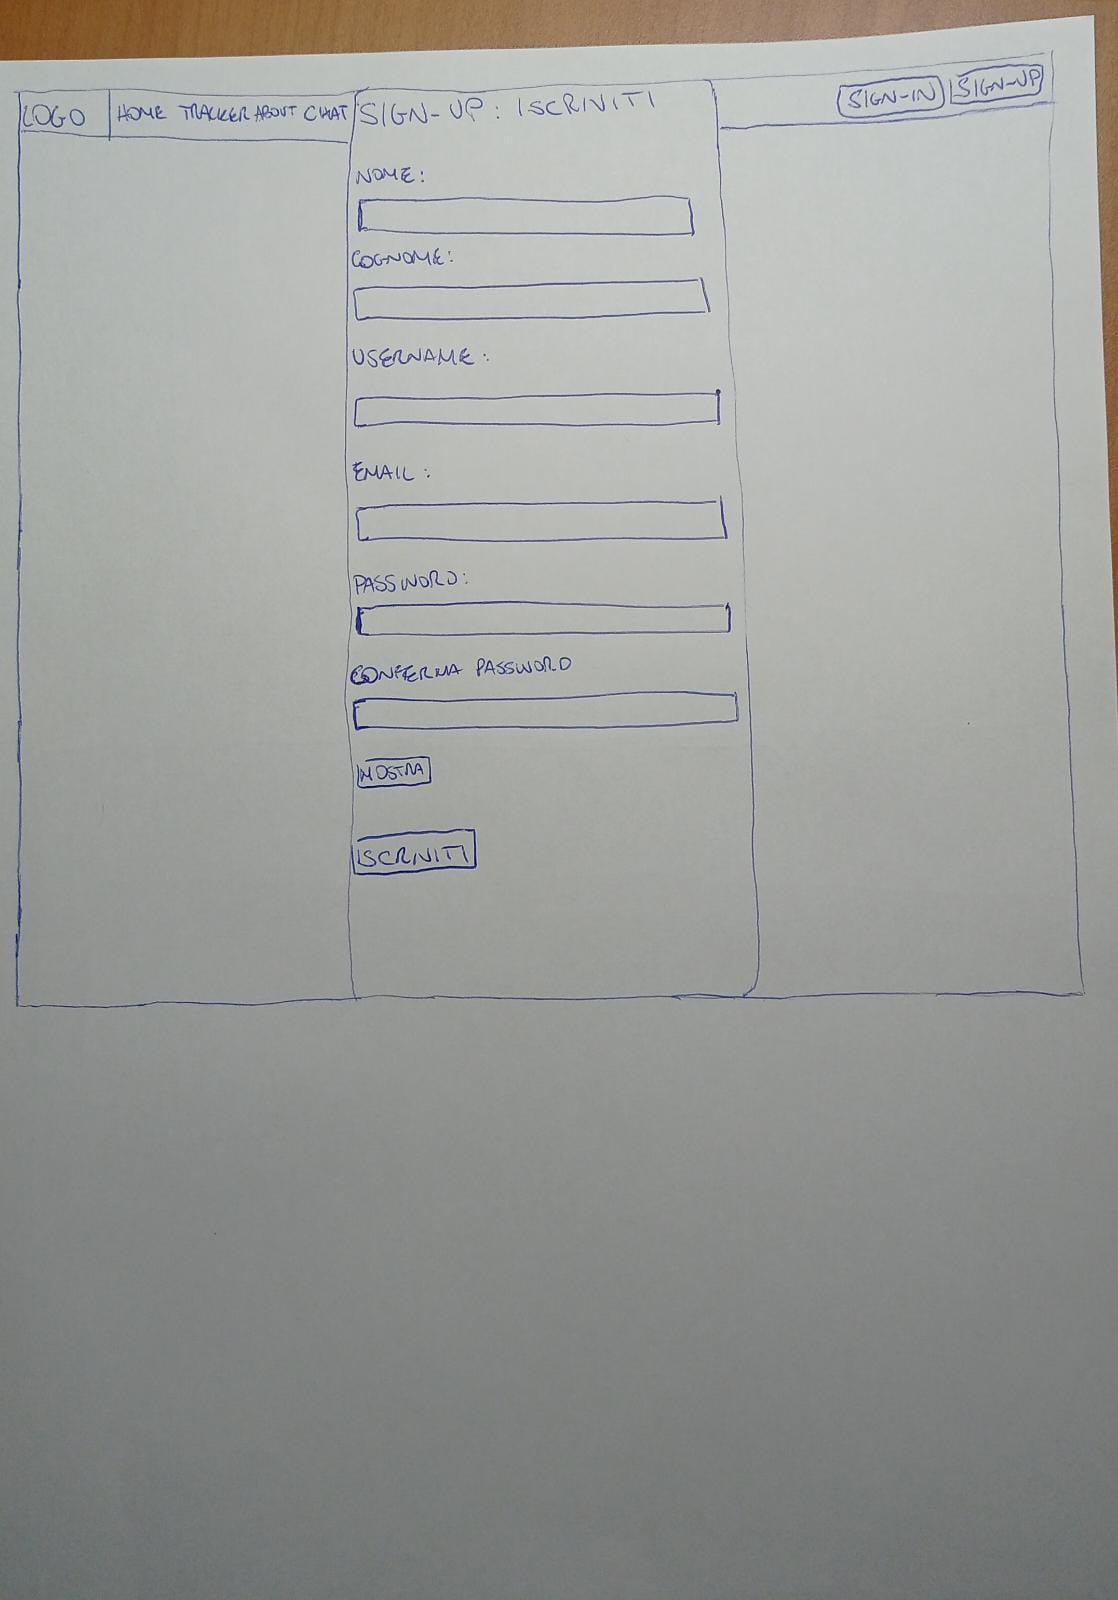 LOGO HOME TRACKER ABOUT CHAT SIGN-UP: ISCRIVITI SIGN-IN SIGN-UP
NOME:
COGNOME:
USERNAME:
EMAIL:
PASSWORD:
CONFERMA PASSWORD
MOSTRA
ISCRIVITI